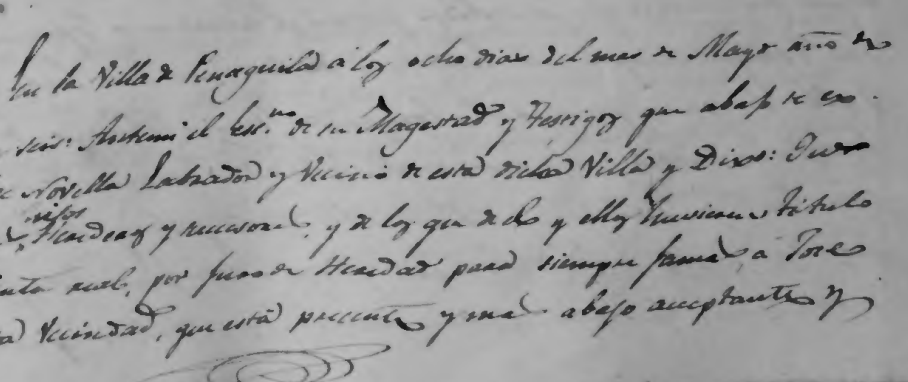 En la Villa de Penaguila a los ocho dias del mes de Mayo año de
seis: Antemi el Ess.no de su Magestad y testigos que abajo se ex
Novella Labrador y Vecino de esta dicha Villa y Dixo: Que
hijos
Herederos y sucesores, y de los que de el y ellos tuvieren titulo
venta real, por Juro de Heredad para siempre jamas, a Jose
Vecindad, que está presente y mas abajo aceptante y